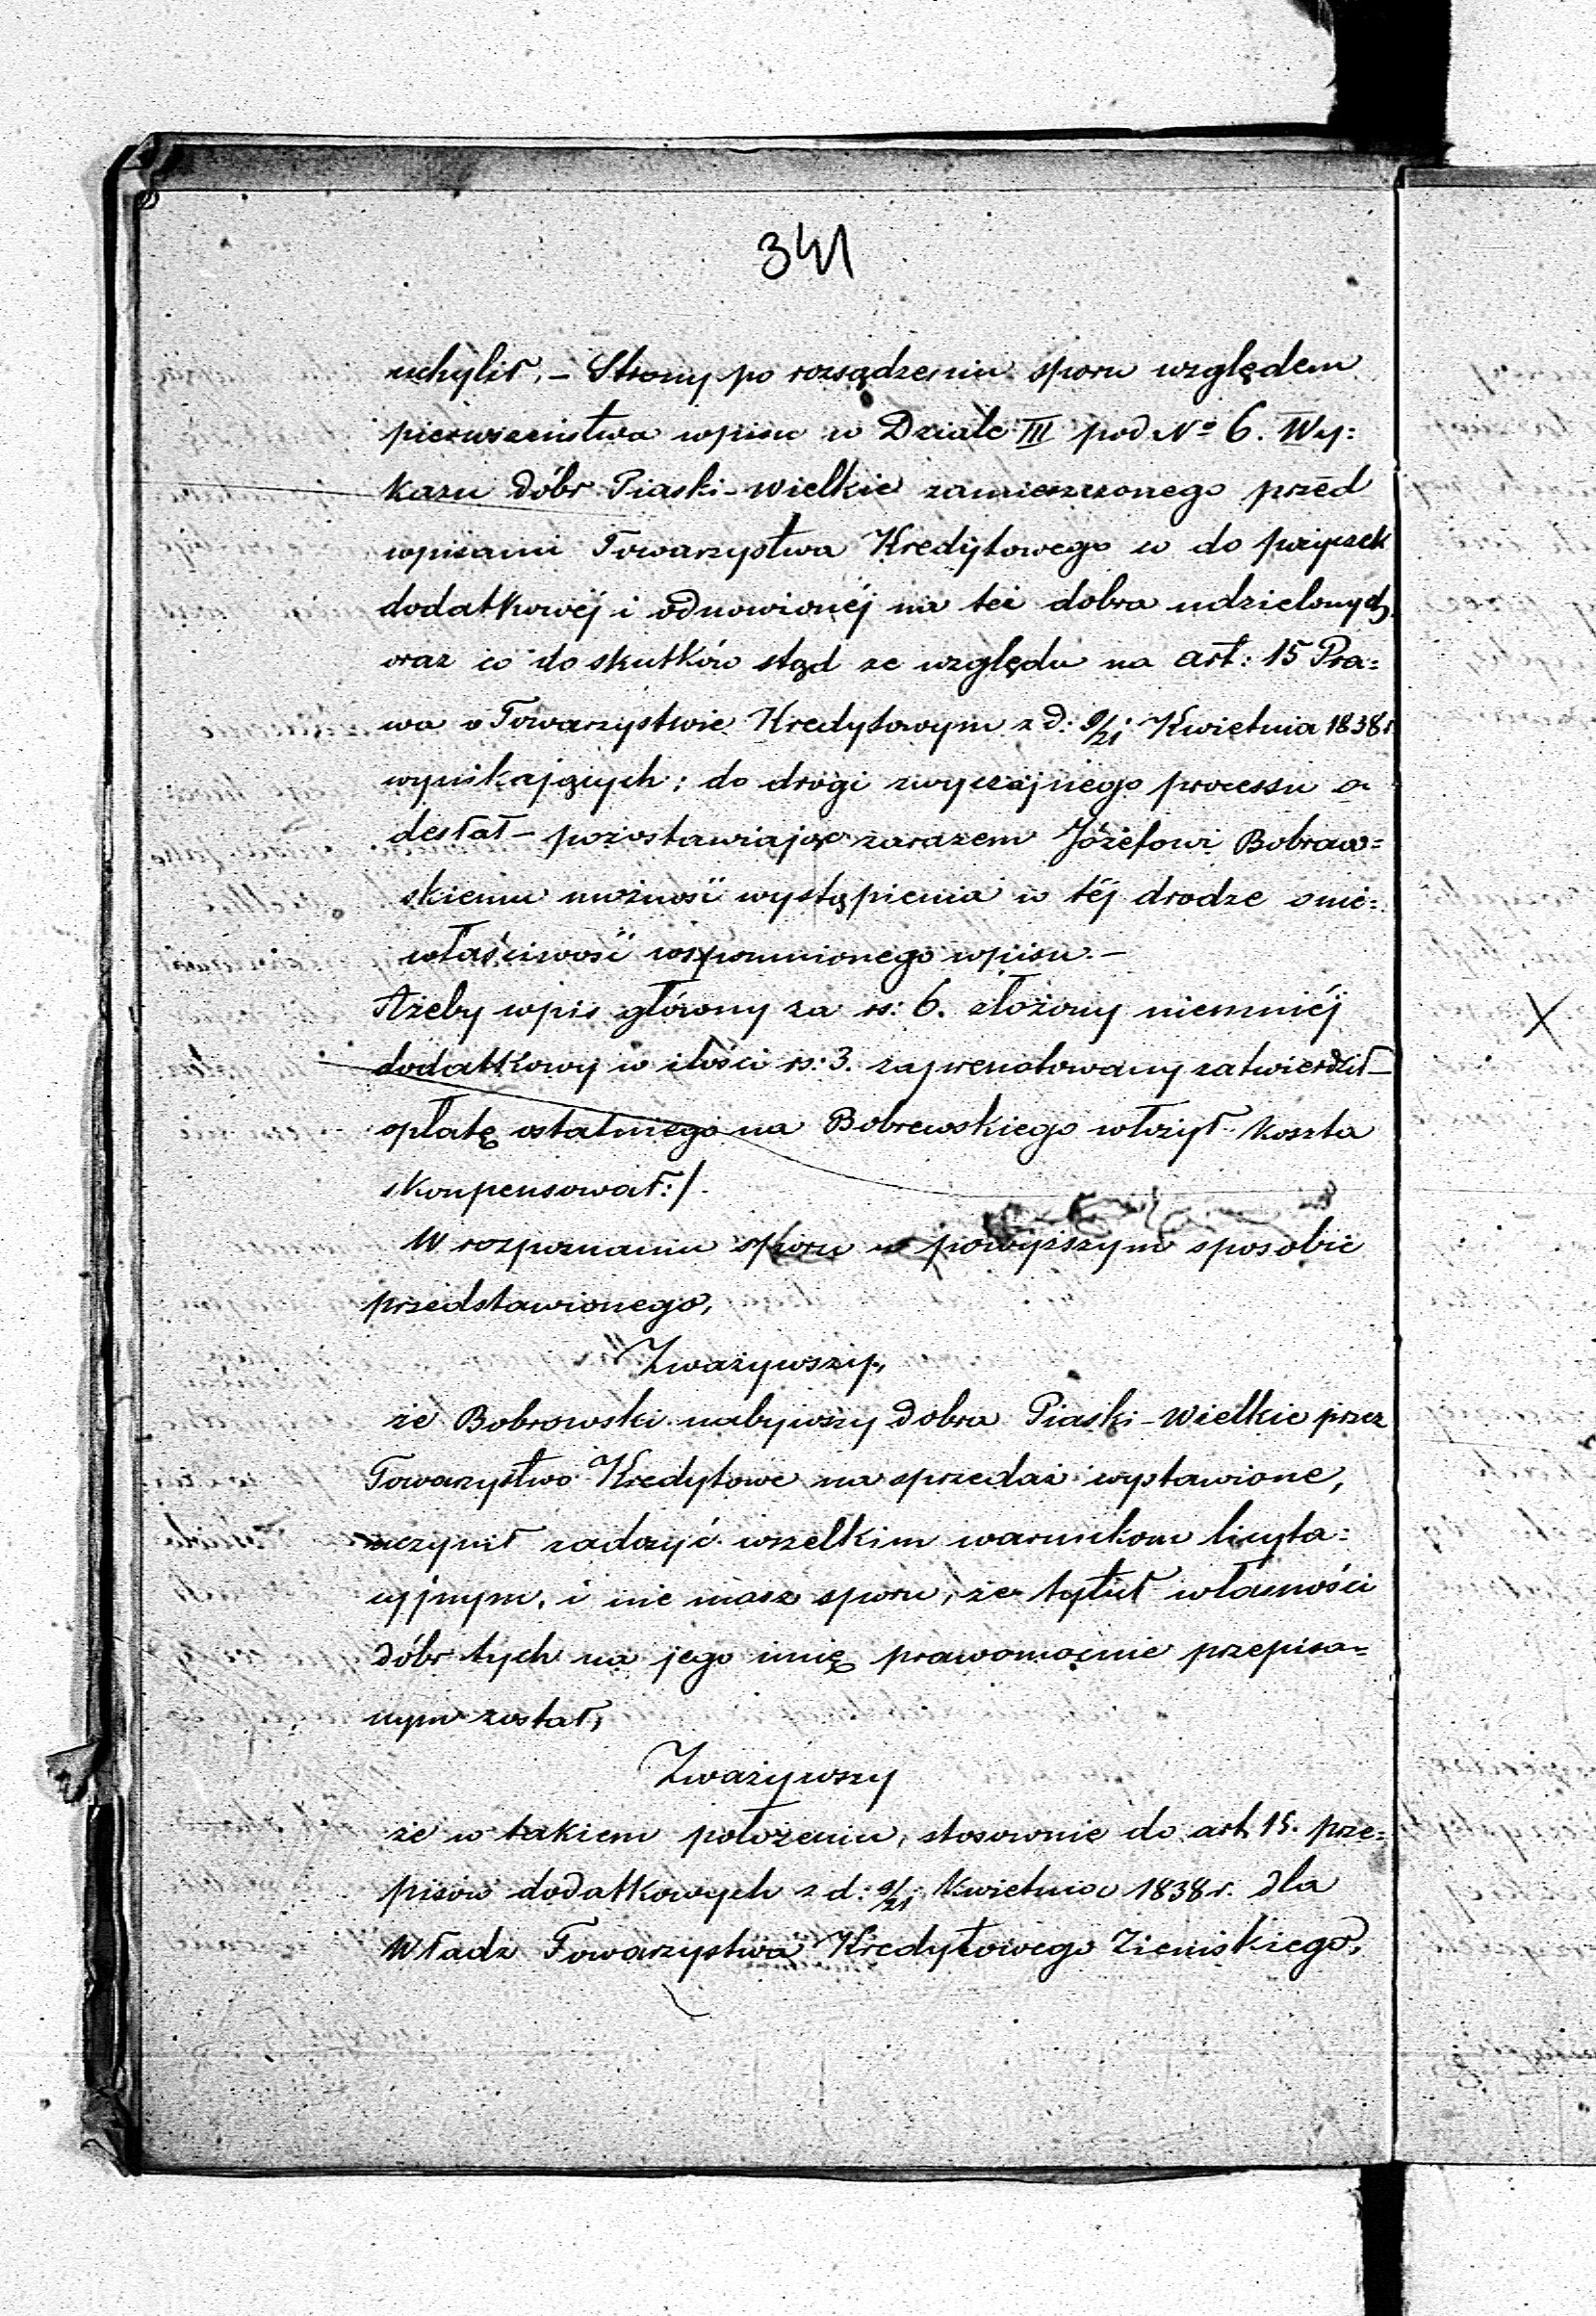 341
uchylił. – Strony po rozsądzeniu sporu względem
pierwszeństwa wpisu w Dziale III pod No 6. Wy:
kazu dóbr Piaski-Wielkie zamieszczonego przed
wpisami Towarzystwa Kredytowego co do pożyczek
dodatkowéj i odnowionéj na też dobra udzielonych,
oraz co do skutków stąd ze względu na art: 15 Pra:
wa o Towarzystwie Kredytowym z d: 9/21 Kwietnia 1838 r
wynikających: do drogi zwyczajnego processu o
desłał – pozostawiając zarazem Józefowi Bobrow=
skiemu możność wystąpienia w téj drodze o nie:
właściwość wspomnionego wpisu. –
Ażeby wpis główny za rs: 6. złożony niemniéj
dodatkowy w ilości rs: 3. zaprenotowany zatwierdził –
opłatę ostatniego na Bobrowskiego włożył koszta
skonpensował:/.
W rozpoznaniu sporu w powyższym sposobie
przedstawionego,
Zważywszy,
że Bobrowski nabywszy dobra Piaski-Wielkie przez
Towarzystwo Kredytowe na sprzedaż wystawione,
uczynił zadosyć wszelkim warunkom licyta:
cyjnym, i nie masz sporu, że tytuł własności
dóbr tych na jego imię prawomocnie przepisa=
nym został,
Zważywszy
że w takiem położeniu, stosownie do art 15. prze=
pisów dodatkowych z d: 9/21 Kwietnia 1838 r. dla
Władz Towarzystwa Kredytowego Ziemskiego,